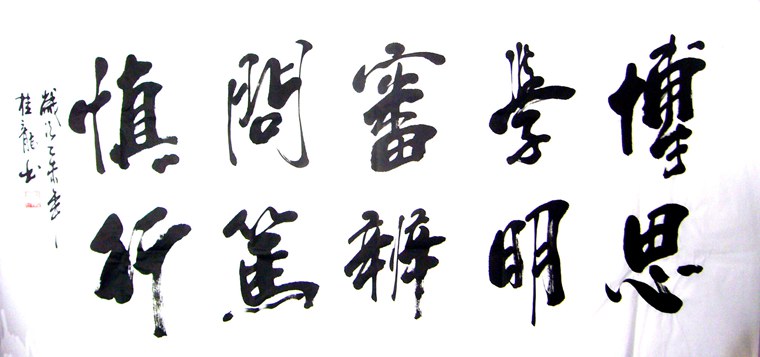 博學審問慎
思明辨篤行
歲次乙未
桂龍書